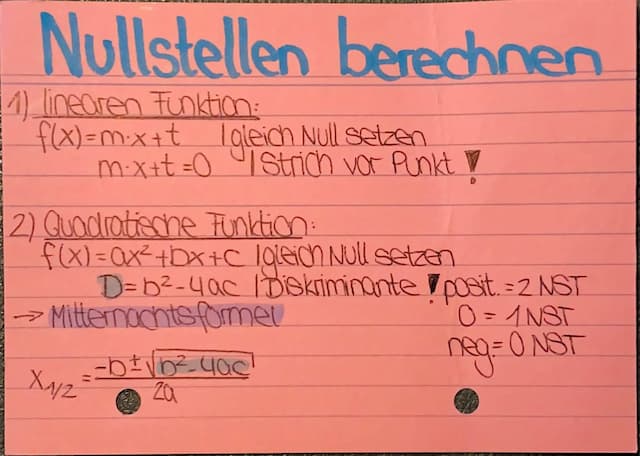 Nullstellen berechnen
1) linearen Funktion:
f(x)=m·x+t | gleich Null setzen
m·x+t=0 | Strich vor Punkt !
2) Quadratische Funktion:
f(x)=ax²+bx+c | gleich Null setzen
D=b²-4ac | Diskriminante ! posit. = 2 NST
0 = 1 NST
neg. = 0 NST
→ Mitternachtsformel
x₁/₂ = -b±√b²-4ac / 2a